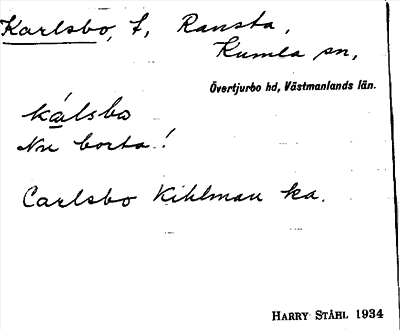 Karlsbo, t, Ransta,
Kumla sn,
Övertjurbo hd, Västmanlands län.
kálsbo
Nu borta!
Carlsbo Kihlman ka.
HARRY STÅHL 1934